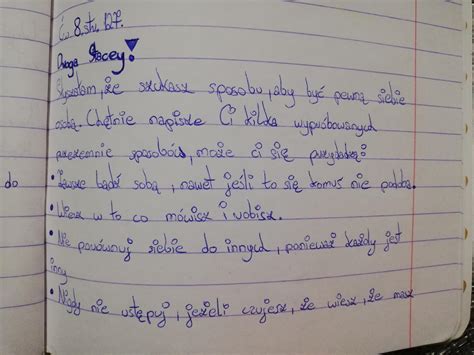 Ćw 8. str. 127.
Droga Stacey!
Słyszałam, że szukasz sposobu, aby być pewną siebie
osobą. Chętnie napisze Ci kilka wypróbowanych
przezemnie sposobów, może ci się przydadzą:
• Zawsze bądź sobą, nawet jeśli to się komuś nie podoba.
• Wierz w to co mówisz i robisz.
do
• Nie porównuj siebie do innych, ponieważ każdy jest
inny
• Nigdy nie ustępuj, jeżeli czujesz, że wiesz, że masz